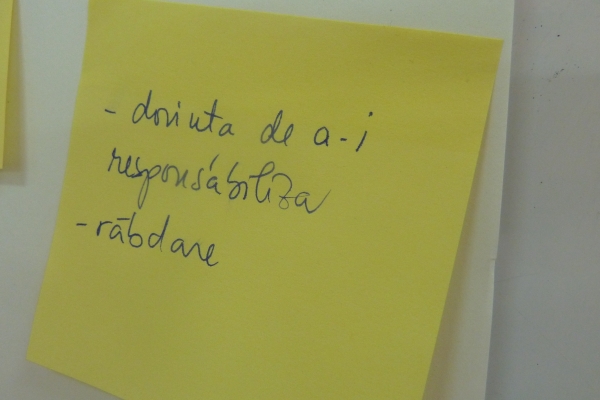 - dorinta de a-i
responsabiliza
- răbdare